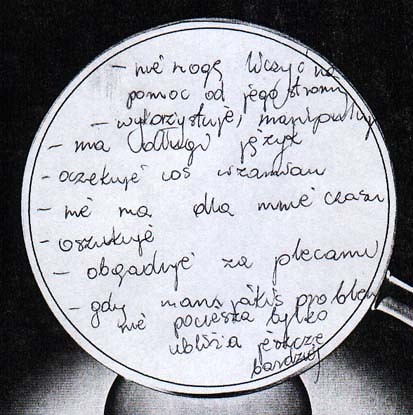 - nie mogę liczyć na
pomoc od jego strony
- wykorzystuje, manipuluje
- ma długi język
- oczekuje coś wzamian
- nie ma dla mnie czasu
- oszukuje
- obgaduje za plecami
- gdy mam jakiś problem
nie pociesza tylko
ubliża jeszcze
bardziej